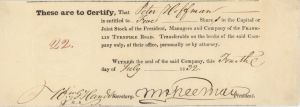 These are to Certify, That Peter Hoffman
is entitled to Five Shares in the Capital or
Joint Stock of the President, Managers and Company of the Franklin
Turnpike Road. Transferable on the books of the said Company
only, at their office, personally or by attorney.
Witness the seal of the said Company, this Tenth
day of July 1832
Secretary.